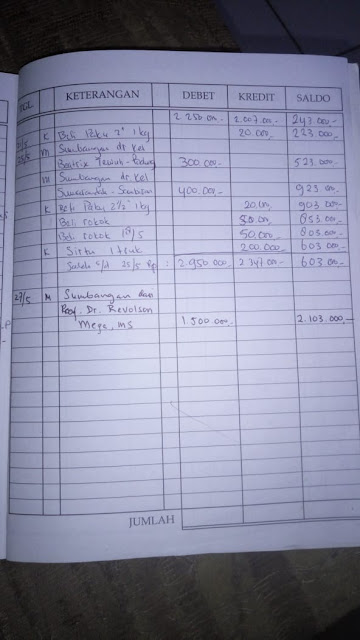 TGL KETERANGAN DEBET KREDIT SALDO
2.250.000,- 2.007.000,- 243.000,-
K Beli Paku 2" 1 kg 20.000,- 223.000,-
25/5 M Sumbangan dr kel
Beatrix 300.000,- 523.000,-
M Sumbangan dr. Kel
400.000,- 923.000,-
K Beli Paku 2½" 1 kg 20.000,- 903.000,-
Beli rokok 50.000,- 853.000,-
Beli rokok 50.000,- 803.000,-
K Sirtu 1 truk 200.000,- 603.000,-
Saldo s/d 25/5 Rp : 2.950.000,- 2.347.000,- 603.000,-
27/5 M Sumbangan dari
Prof. Dr. Revolson
Mega, MS 1.500.000,- 2.103.000,-
JUMLAH